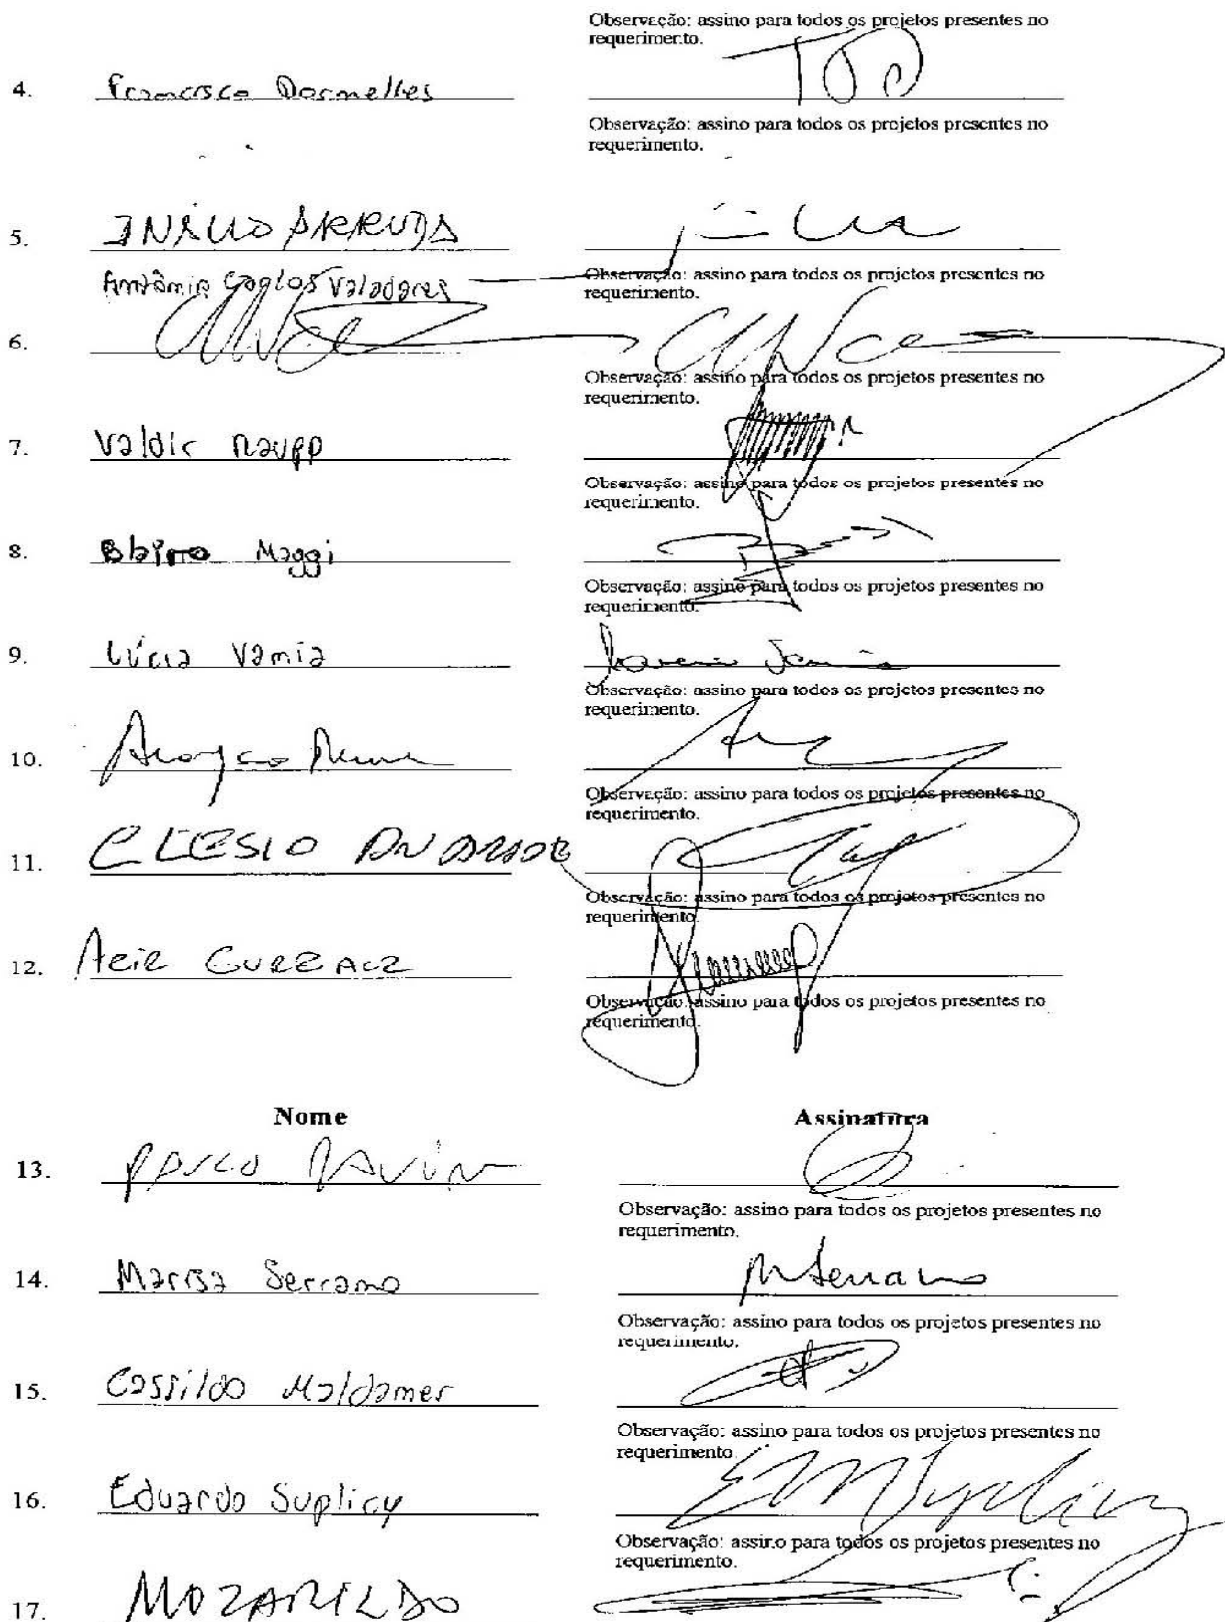 Observação: assino para todos os projetos presentes no
requerimento.
4. Francisco Dornelles
Observação: assino para todos os projetos presentes no
requerimento.
5. INÁCIO ARRUDA
Antônio Carlos Valadares
Observação: assino para todos os projetos presentes no
requerimento.
6.
Observação: assino para todos os projetos presentes no
requerimento.
7. Valdir Raupp
Observação: assino para todos os projetos presentes no
requerimento.
8. Blairo Maggi
Observação: assino para todos os projetos presentes no
requerimento.
9. Lúcia Vania
Observação: assino para todos os projetos presentes no
requerimento.
10. Aloysio Nunes
Observação: assino para todos os projetos presentes no
requerimento.
11. CLESIO ANDRADE
Observação: assino para todos os projetos presentes no
requerimento.
12. Acir GURGACZ
Observação: assino para todos os projetos presentes no
requerimento.
Nome Assinatura
13. PAULO
Observação: assino para todos os projetos presentes no
requerimento.
14. Marisa Serrano MSerrano
Observação: assino para todos os projetos presentes no
requerimento.
15. Cassildo Maldaner
Observação: assino para todos os projetos presentes no
requerimento.
16. Eduardo Suplicy EMSuplicy
Observação: assino para todos os projetos presentes no
requerimento.
17. MOZARILDO